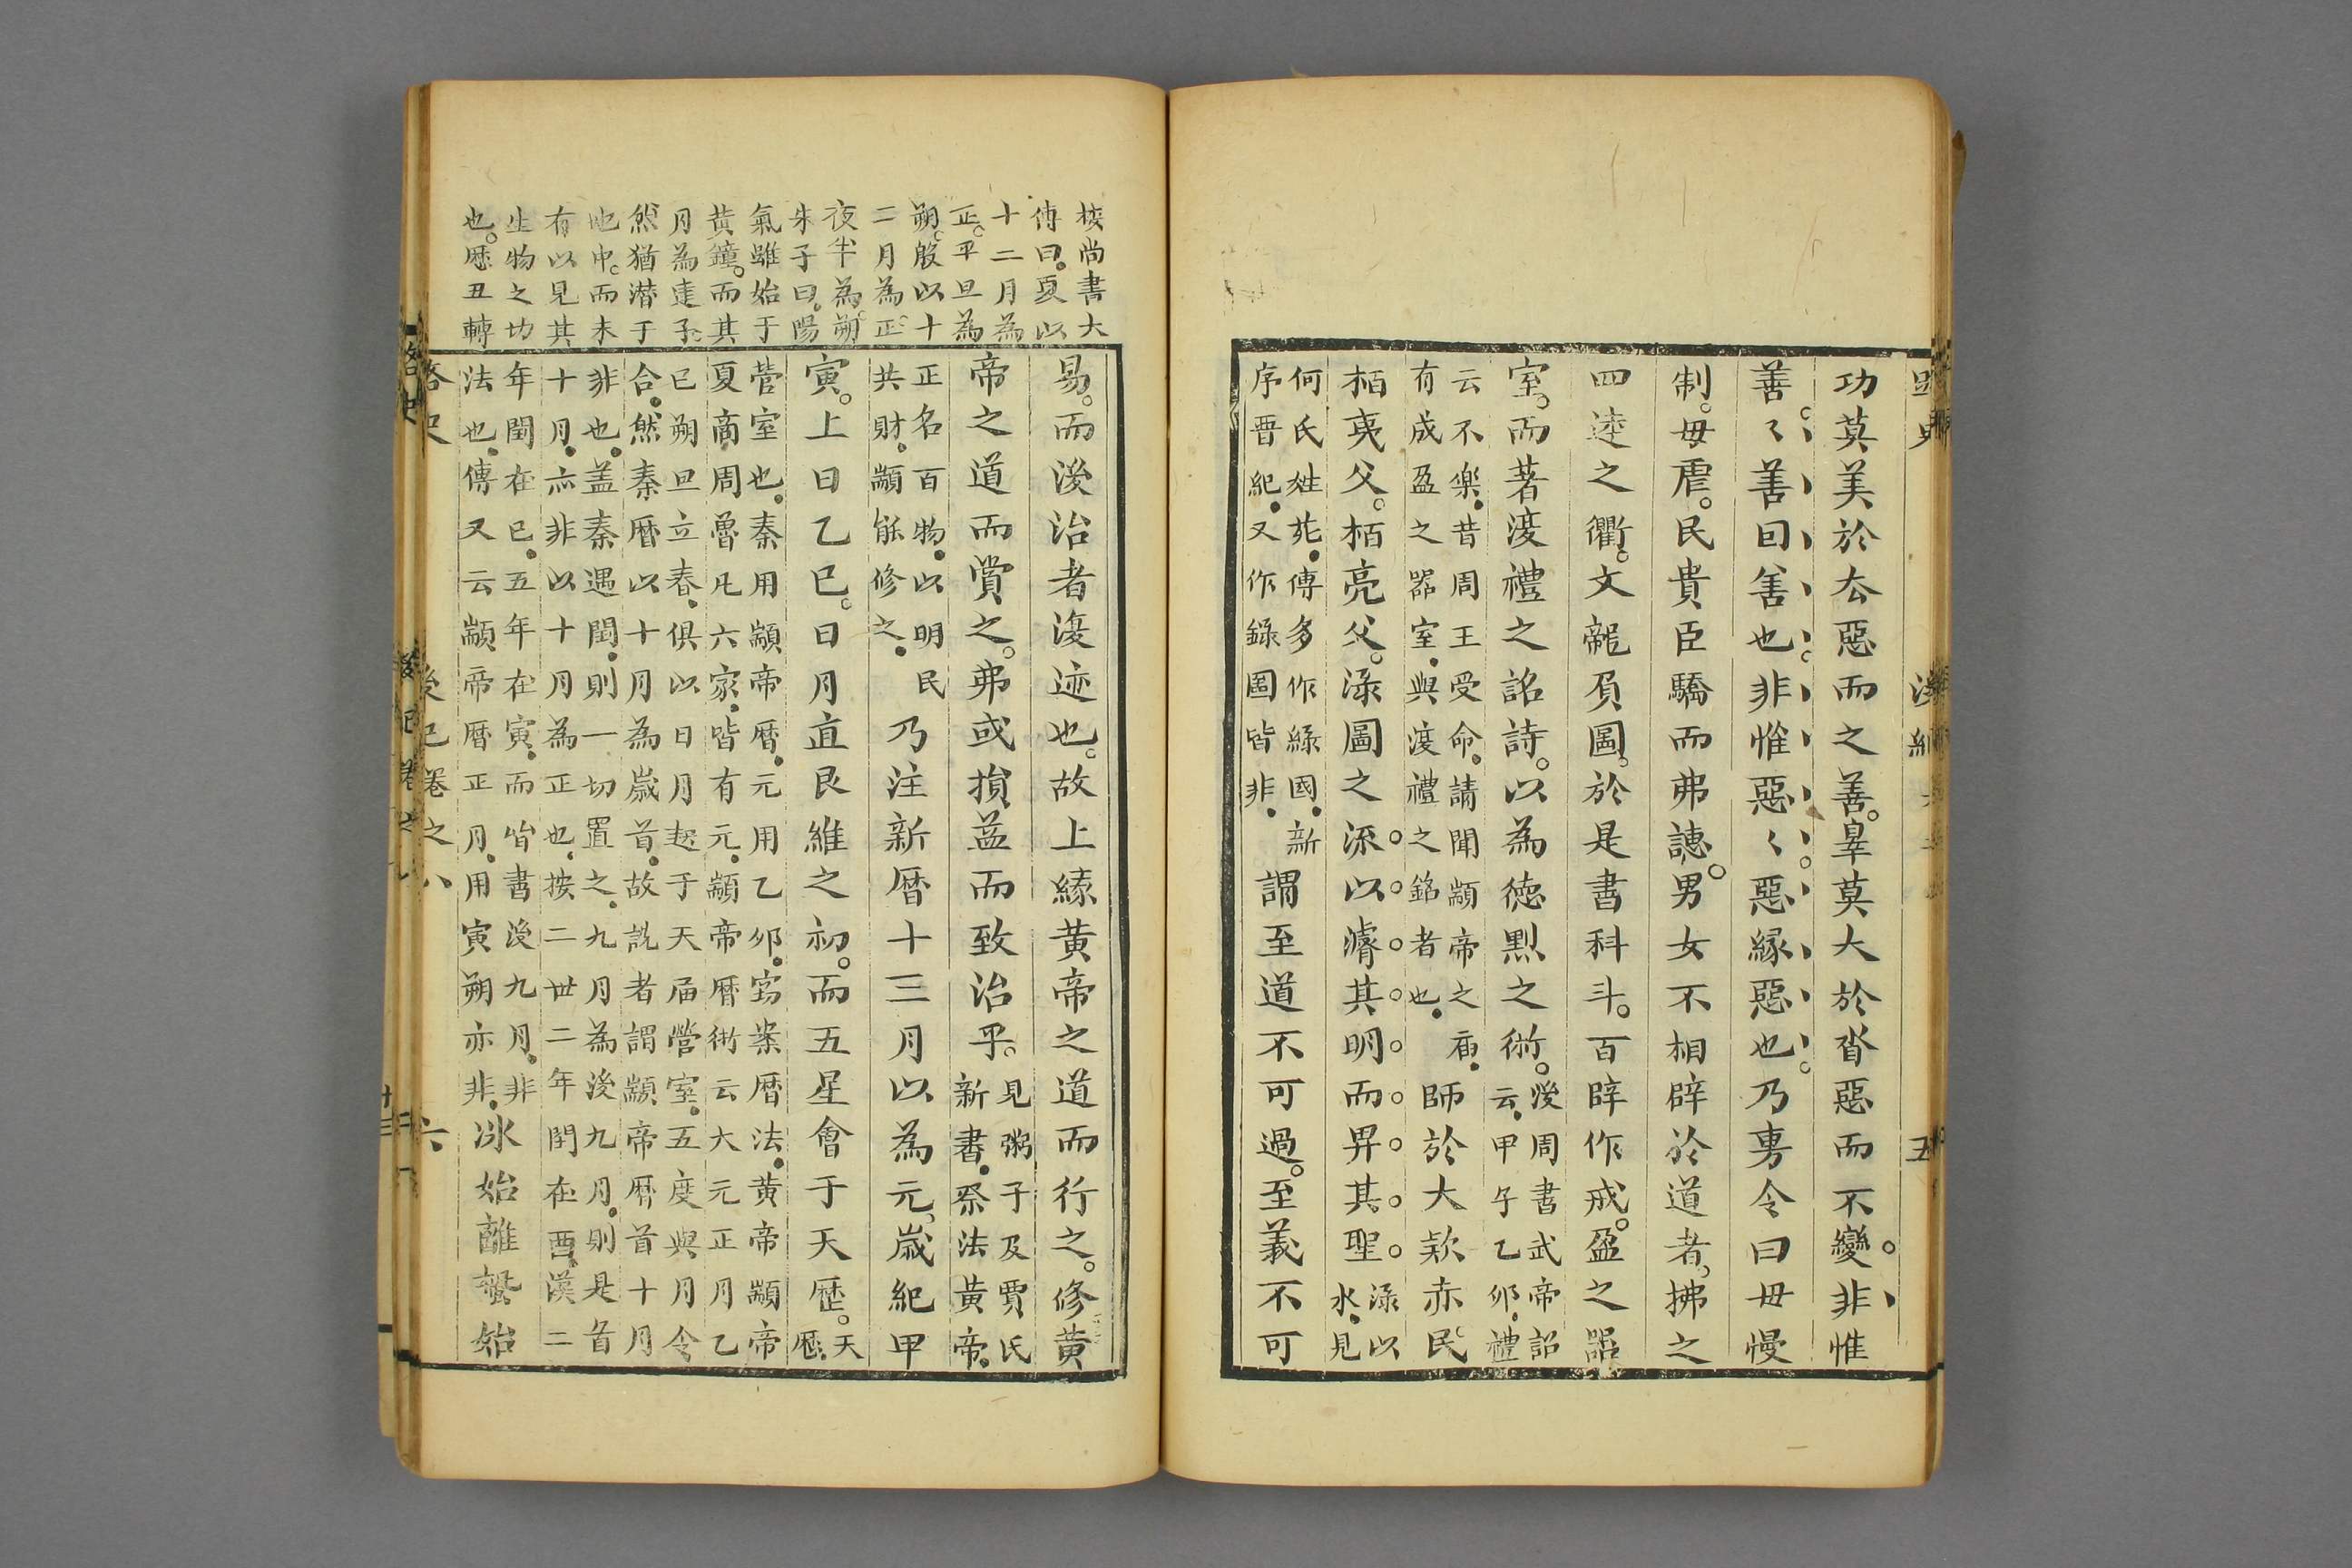 路史
後紀
五
功莫美於厺惡而之善。辠莫大於沓惡而不變。非惟
善〻善囙善也。非惟惡〻惡緣惡也。乃専令曰毋慢
制。毋虐。民貴臣驕而弗譓。男女不相辟於道者。拂之
四逵之衢。文龍負圖。於是書科斗。百辟作戒。盈之器
室。而著復禮之詺詩。以為德㷱之術。
後周書武帝詔
云甲午乙卯禮
云不楽昔周王受命請聞顓帝之庙
有成盈之器室與復禮之銘者也
師於大欵赤民
栢夷父。栢亮父。淥圖之深以濬其明而昇其聖
淥以
水見
何氏姓苑傳多作綠國新
序晋紀又作錄圖皆非
謂至道不可過。至義不可
梭尚書大
傳曰。夏以
十二月為
正。平旦為
朔。殷以十
二月為正。
夜半為朔。
朱子曰。陽
氣雖始于
黃鐘。而其
月為建子。
然猶潜于
地中。而未
有以見其
生物之功
也。歷丑轉
易。而後治者復迹也。故上緣黃帝之道而行之。修黃
帝之道而賞之。弗或損益而致治平。
見粥子及賈氏
新書祭法黃帝
正名百物以明民
共財顓能修之
乃注新曆十三月以為元。歲紀甲
寅。上日乙巳。日月直艮維之初。而五星會于天歷。
天
歷
营室也秦用顓帝曆元用乙卯窃案曆法黃帝顓帝
夏商周魯凡六家皆有元顓帝曆術云大元正月乙
巳朔旦立春俱以日月起于天届營室五度與月令
合然秦曆以十月為歲首故説者謂顓帝曆首十月
非也盖秦遇閏則一切置之九月為後九月則是首
十月亦非以十月為正也按二世二年閏在酉漢二
年閏在巳五年在寅而皆書後九月非
法也傳又云顓帝曆正月用寅朔亦非
冰始離蟄始
路史
後紀卷之八
六